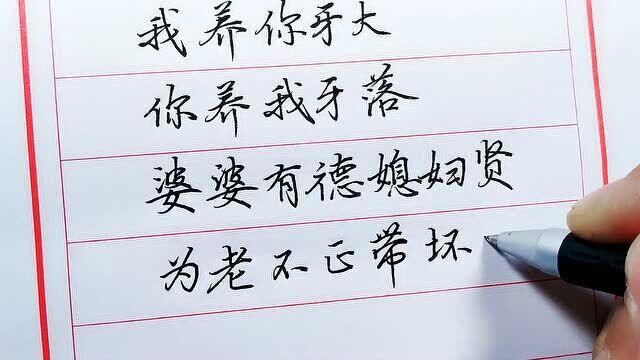 我养你牙大
你养我牙落
婆婆有德媳妇贤
为老不正带坏